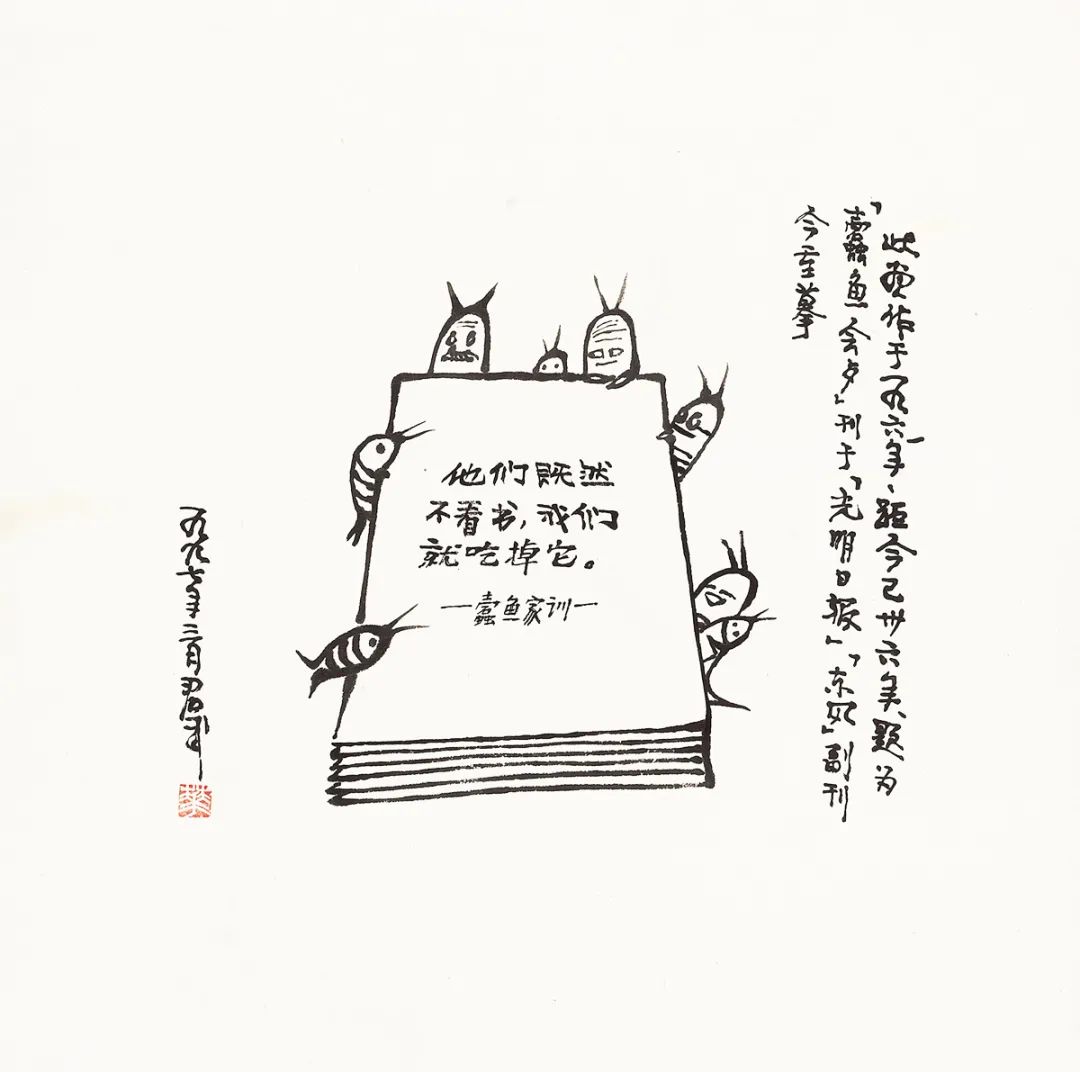 他们既然
不看书，我们
就吃掉它。
—蠹鱼家训—
此画作于一九六一年、距今已卅六年、题为
「蠹鱼会歺」刊于「光明日报」、「东风」副刊
今重摹
一九九七年三月君武
華